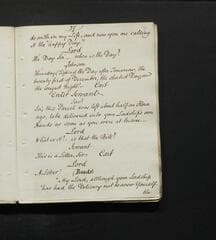 37
do with in my Life, and now you are calling
it the happy Day.
Lord
the Day Sir, when is the Day?
Johnson
Thursday
the Day after Tomorrow, the
twenty first of December, the shortest Day and
the longest Night. Exit
Enter Servant
Serv.t
Sir, this Parcel was left about half an Hour
ago, to be delivered into your Ladyships own
Hands as soon as you were at home.
Lord
What is it? is that the Bill?
Servant
This is a Letter, Sir. Exit
Lord
A Letter! (Reads)
"My Lord, although your Ladyship
has had the Delicacy not to avow Yourself
the